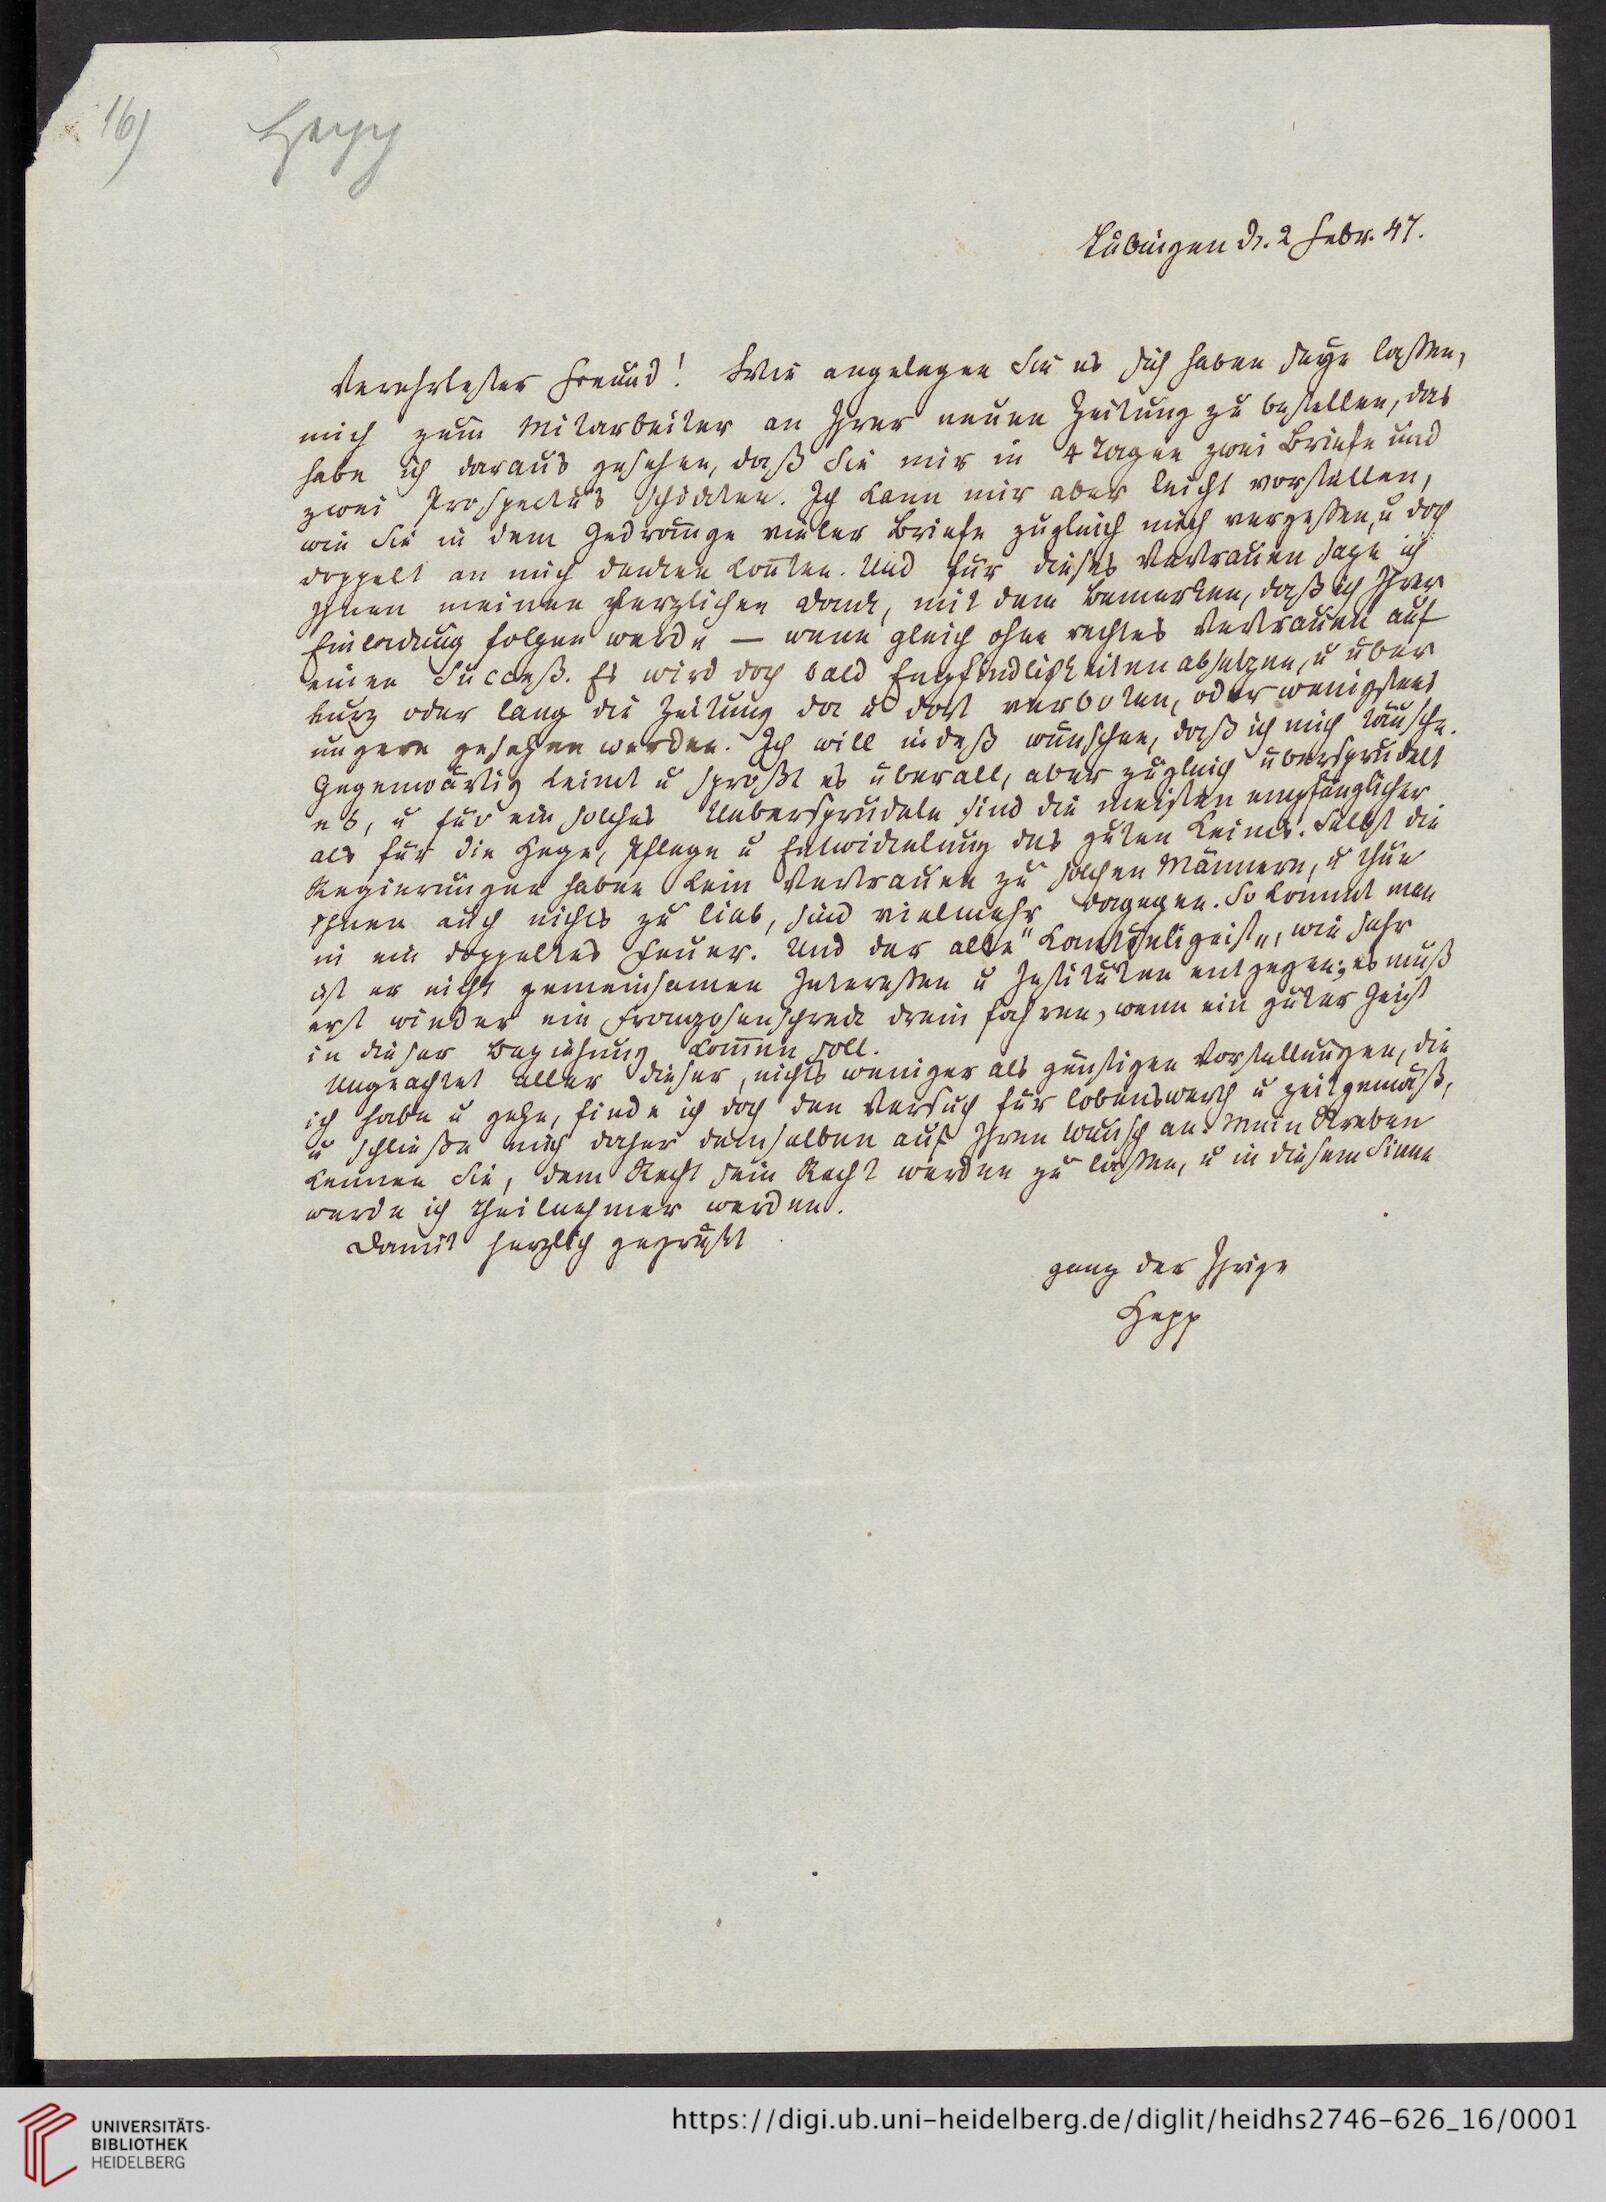 16) Hepp
Tübingen d. 2 Febr. 47.
Verehrtester Freund! Wie angelegen Sie es sich haben seyn laßen,
mich zum Mitarbeiter an Ihrer neuen Zeitung zu bestellen, das
habe ich daraus gesehen, daß Sie mir in 4 Tagen zwei Briefe und
zwei Prospectus schickten. Ich kann mir aber leicht vorstellen,
wie Sie in dem Gedränge vieler Briefe zugleich mich vergeßen, u doch
doppelt an mich denken konten. Und für dieses Vertrauen sage ich
Ihnen meinen herzlichen Dank, mit dem Bemerken, daß ich Ihrer
Einladung folgen werde — wenn gleich ohne rechtes Vertrauen auf
einen Succeß. Es wird doch bald Empfindlichkeiten absetzen, u über
kurz oder lang die Zeitung da u dort verboten, oder wenigstens
ungern gesehen werden. Ich will indeß wünschen, daß ich mich täusche.
Gegenwärtig keimt u sproßt es überall, aber zugleich übersprudelt
es, u für ein solches Uebersprudeln sind die meisten empfänglicher
als für die Hege, Pflege u Entwickelung des guten Keims. Selbst die
Regierungen haben kein Vertrauen zu solchen Männern, u thun
Ihnen auch nichts zu lieb, sind vielmehr dagegen. So kommt man
in ein doppeltes Feuer. Und der alte , wie sehr
ist er nicht gemeinsamen Intereßen u Instituten entgegen; es muß
erst wieder ein Franzosenschreck drein fahren, wenn ein guter Geist
in dieser Beziehung komen soll.
Ungeachtet aller dieser, nichts weniger als günstigen Vorstellungen, die
ich habe u gehe, finde ich doch den Versuch für lobenswerth u zeitgemäß,
u schließe mich daher demselben auf Ihren Wunsch an. Mein Streben
kennen Sie, dem Recht sein Recht werden zu laßen, u in diesem Sinne
werde ich Theilnehmer werden.
Damit herzlich gegrüßt
ganz der Ihrige
Hepp
UNIVERSITÄTS-
BIBLIOTHEK
HEIDELBERG
https://digi.ub.uni-heidelberg.de/diglit/heidhs2746-626_16/0001